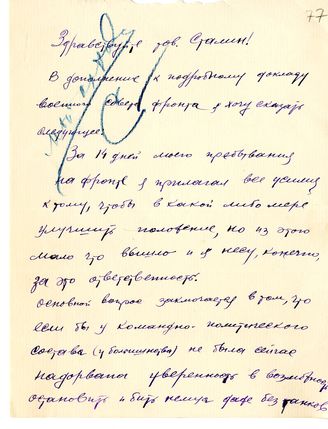 77
Здравствуйте тов. Сталин!
В дополнение к подробному докладу
военного совета фронта я хочу сказать
следующее:
За 14 дней моего пребывания
на фронте я прилагал все усилия
к тому, чтобы в какой либо мере
улучшить положение, но из этого
мало что вышло и я несу, конечно,
за это ответственность.
Основной вопрос заключается в том, что
если бы у командно-политического
состава (у большинства) не была сейчас
надорвана уверенность в возможность
остановить и бить немца даже без танков